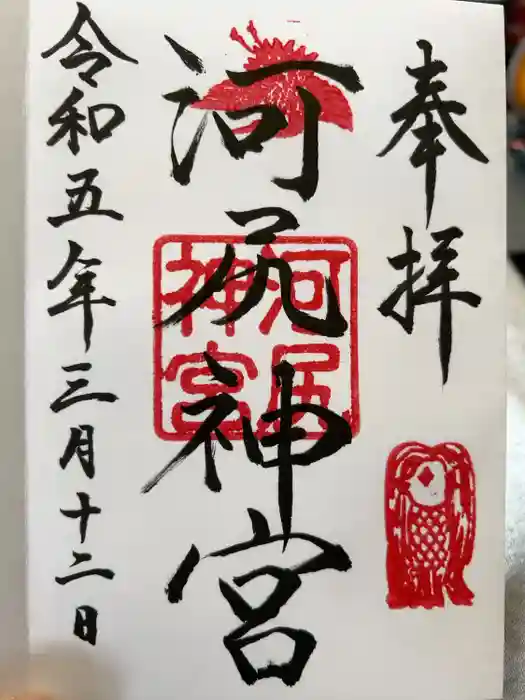 奉拝
河尻神宮
河尻神宮
令和五年三月十二日